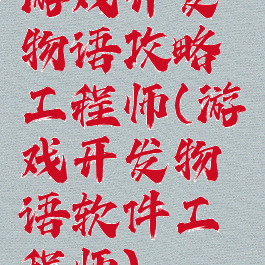 游戏开发
物语攻略
工程师(游
戏开发物
语软件工
程师)